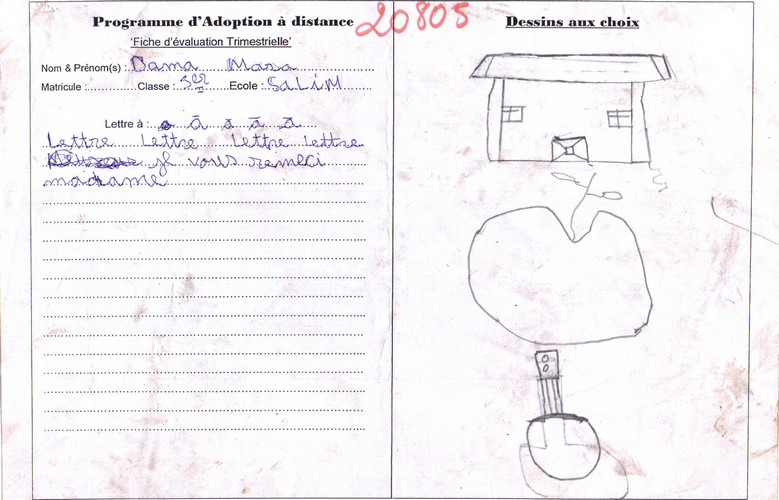 Programme d'Adoption à distance
20805
'Fiche d'évaluation Trimestrielle'
Nom & Prénom(s) : Dama Mara
Matricule : Classe : Ecole : SaLiM
Lettre à : à à à à
Lettre Lettre Lettre Lettre
je vous remeci
madame
Dessins aux choix